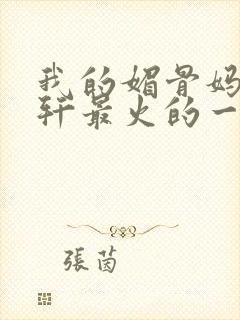 我的媚骨妈
轩最火的一
張茵